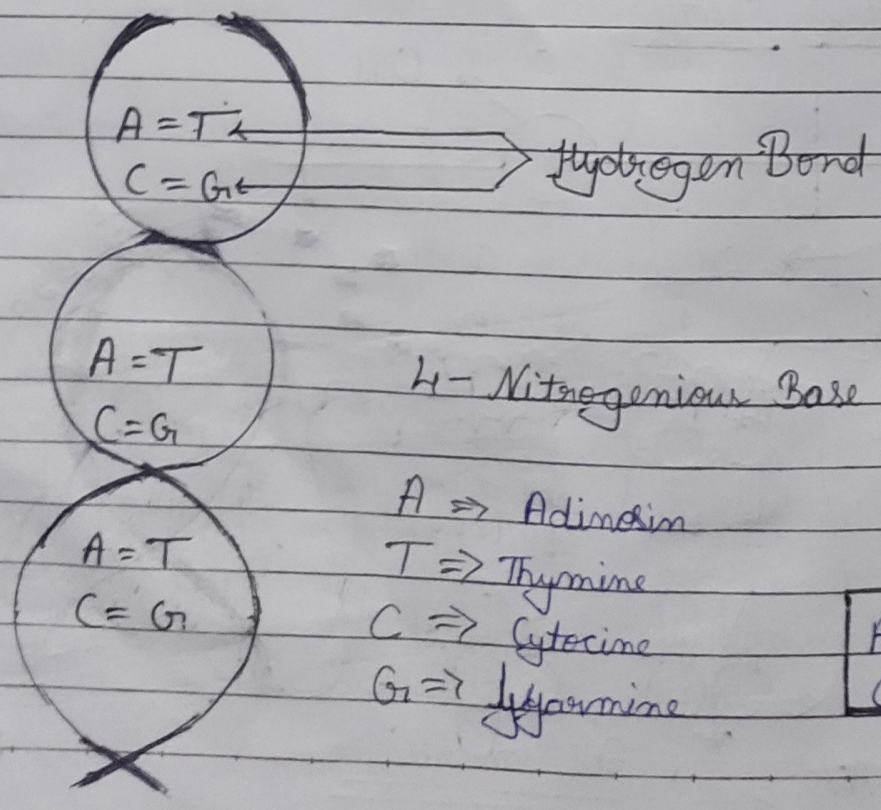 A = T
C = G
Hydrogen Bond
A = T
C = G
4 - Nitrogenious Base
A = T
C = G
A => Adinosin
T => Thymine
C => Cytocine
G =>